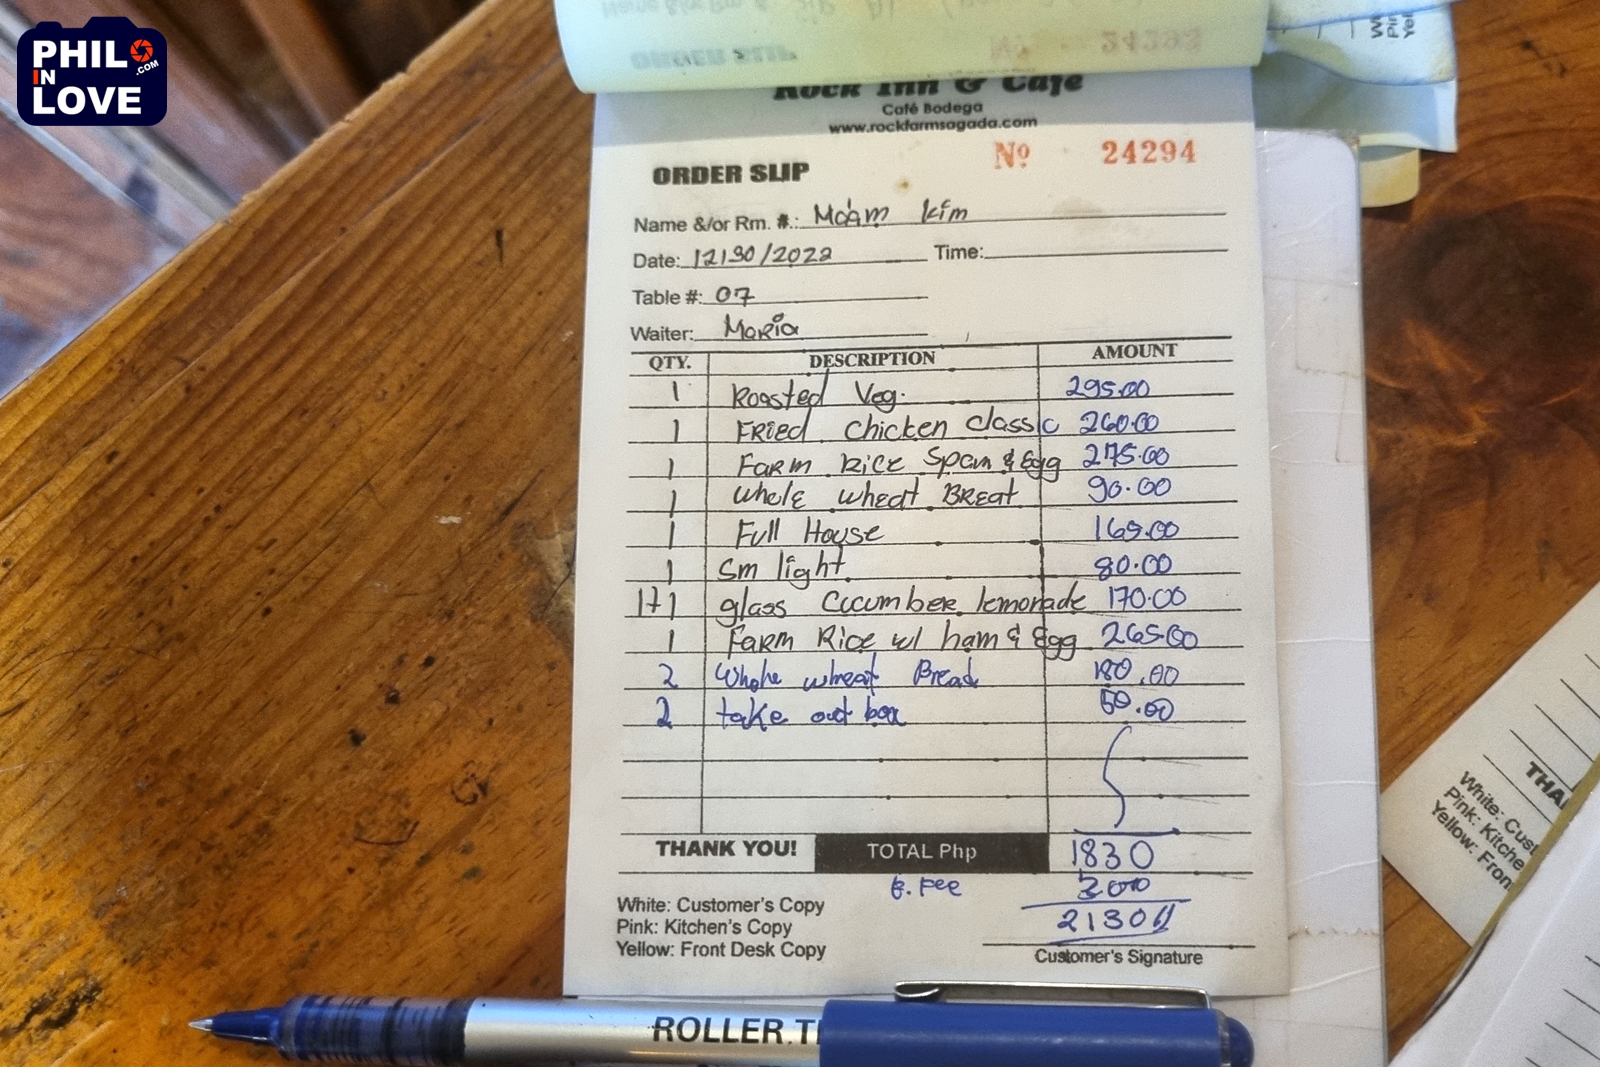 PHIL
IN
LOVE
.COM
Rock Inn & Cafe
Café Bodega
www.rockfarmsagada.com
Nº 24294
ORDER SLIP
Name &/or Rm. #.: Ma'am Kim
Date: 12/30/2022 Time:
Table #: 07
Waiter: Maria
QTY. DESCRIPTION AMOUNT
1 Roasted Veg. 295.00
1 Fried chicken classic 260.00
1 Farm Rice Spam & Egg 275.00
1 whole wheat Breat 90.00
1 Full House 165.00
1 Sm light 80.00
1+1 glass Cucumber lemonade 170.00
1 Farm Rice w/ ham & Egg 265.00
2 Whole wheat Bread 180.00
2 take out box 50.00
THANK YOU! TOTAL Php 1830
Fee 300
2130
White: Customer's Copy
Pink: Kitchen's Copy
Yellow: Front Desk Copy
Customer's Signature
ROLLER.T
THA
White: Cust
Pink: Kitche
Yellow: Fron